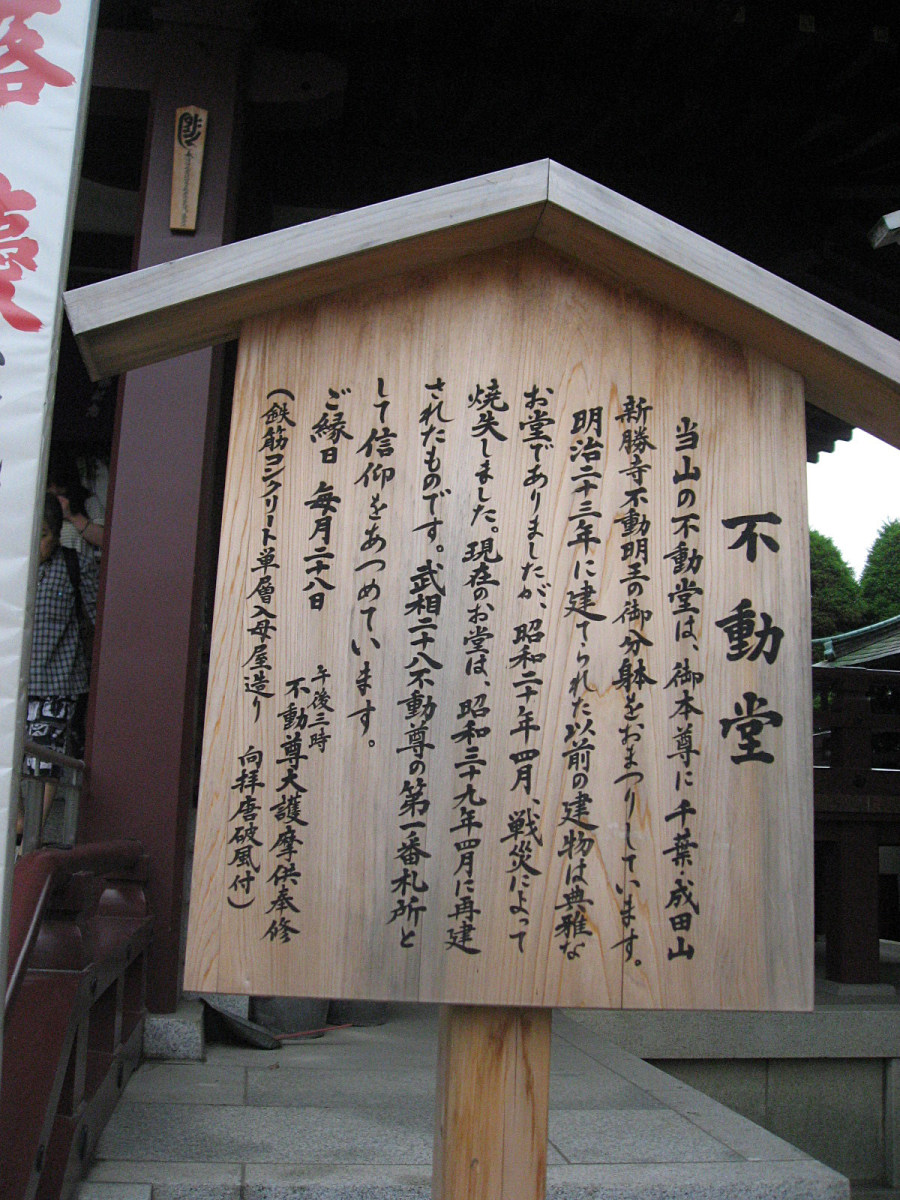 不動堂
当山の不動堂は、御本尊に千葉・成田山
新勝寺不動明王の御分躰をおまつりしています。
明治二十三年に建てられた以前の建物は典雅な
お堂でありましたが、昭和二十年四月、戦災によって
焼失しました。現在のお堂は、昭和三十九年四月に再建
されたものです。武相二十八不動尊の第一番札所と
して信仰をあつめています。
ご縁日 毎月二十八日
午後三時
不動尊大護摩供奉修
(鉄筋コンクリート単層入母屋造り 向拝唐破風付)